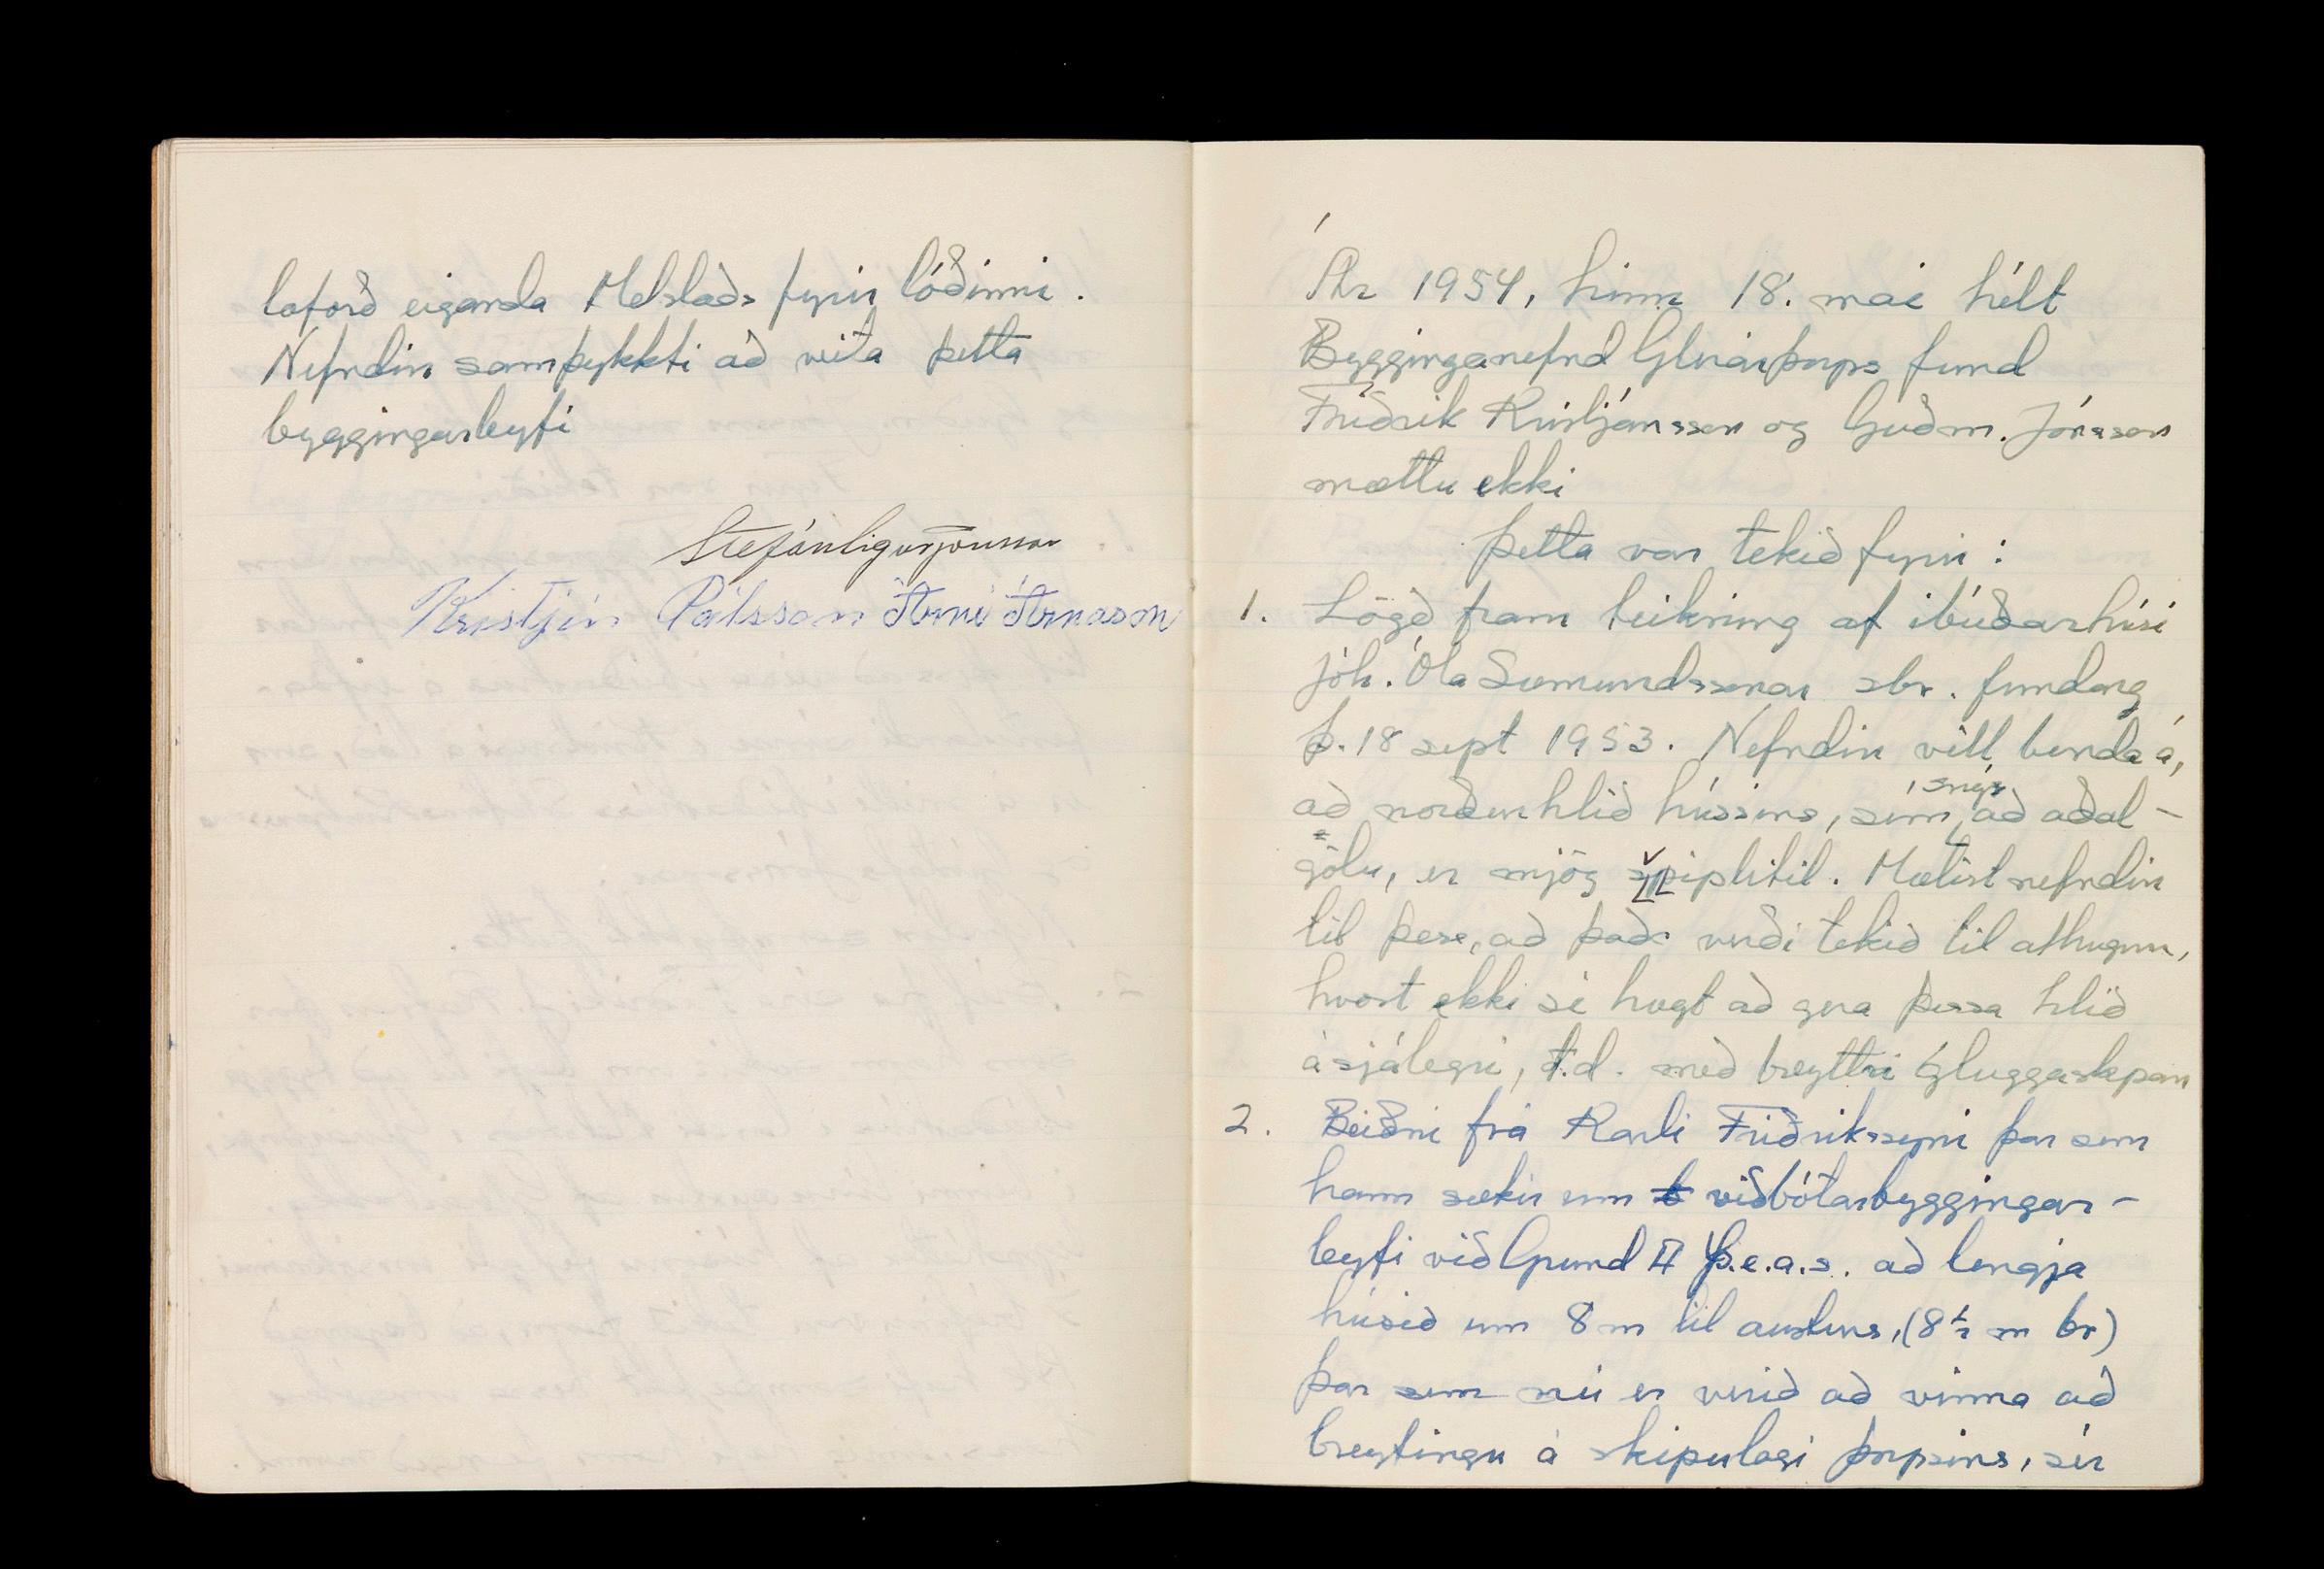 loforð eiganda Melstaðs fyrir lóðinni.
Nefndin samþykkti að veita þetta
byggingarleyfi
Stefán Sigurjónsson
Kristján Pálsson Árni Árnason
Ár 1954, hinn 18. maí hélt
Bygginganefnd Glerárþorps fund
Friðrik Kristjánsson og Guðm. Jónsson
mættu ekki
Þetta var tekið fyrir:
1. Lögð fram teikning af íbúðarhúsi
Jóh. Óla Sæmundssonar sbr. fundarg
þ. 18 sept 1953. Nefndin vill benda á,
að norðurhlið hússins, sem snýr að aðal-
götu, er mjög sviplítil. Mælist nefndin
til þess, að það verði tekið til athugunar,
hvort ekki sé hægt að gera þessa hlið
ásjálegri, t.d. með breyttri gluggaskipan
2. Beiðni frá Karli Friðrikssyni þar sem
hann sækir um viðbótarbyggingar-
leyfi við Grund II þ.e.a.s. að lengja
húsið um 8 m til austurs, (8½ m br)
Þar sem nú er verið að vinna að
breytingu á skipulagi þorpsins, sér